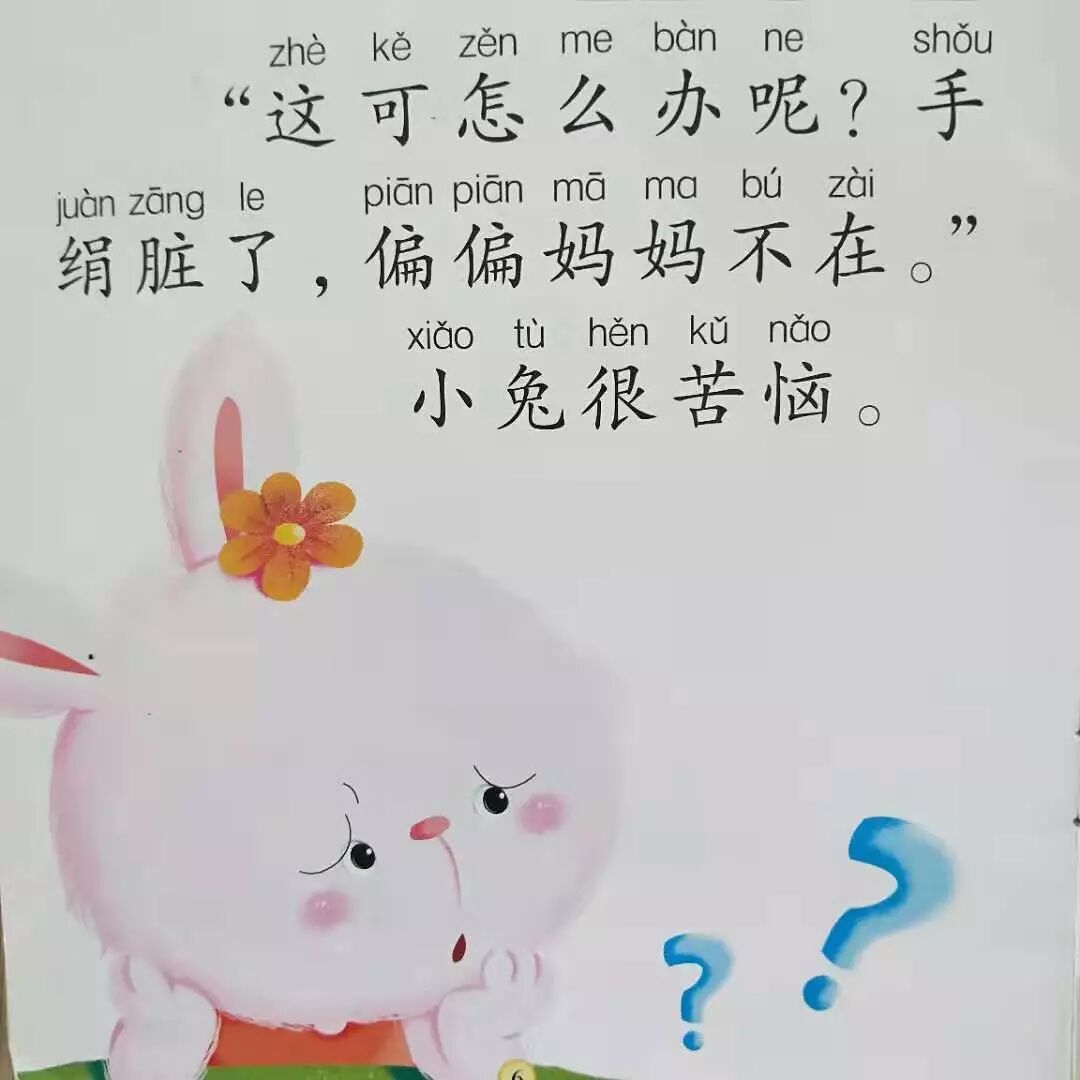 zhè kě zěn me bàn ne shǒu
“这可怎么办呢？手
juàn zāng le piān piān mā ma bú zài
绢脏了，偏偏妈妈不在。”
xiǎo tù hěn kǔ nǎo
小兔很苦恼。
? ?
6